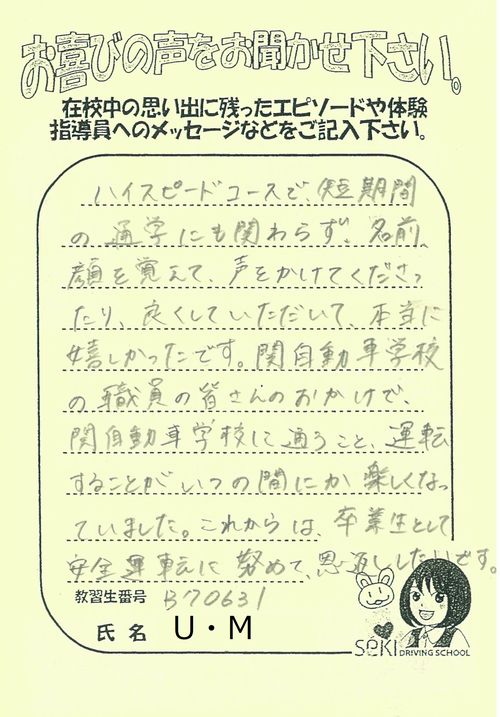 お喜びの声をお聞かせ下さい。
在校中の思い出に残ったエピソードや体験
指導員へのメッセージなどをご記入下さい。
ハイスピードコースで、短期間
の通学にも関わらず、名前、
顔を覚えて、声をかけてくださっ
たり、良くしていただいて、本当に
嬉しかったです。関自動車学校
の職員の皆さんのおかげで、
関自動車学校に通うこと、運転
することがいつの間にか楽しくなっ
ていました。これからは、卒業生として
安全運転に努めて、恩返ししたいです。
教習生番号 B70631
氏名 U・M
SEKI DRIVING SCHOOL